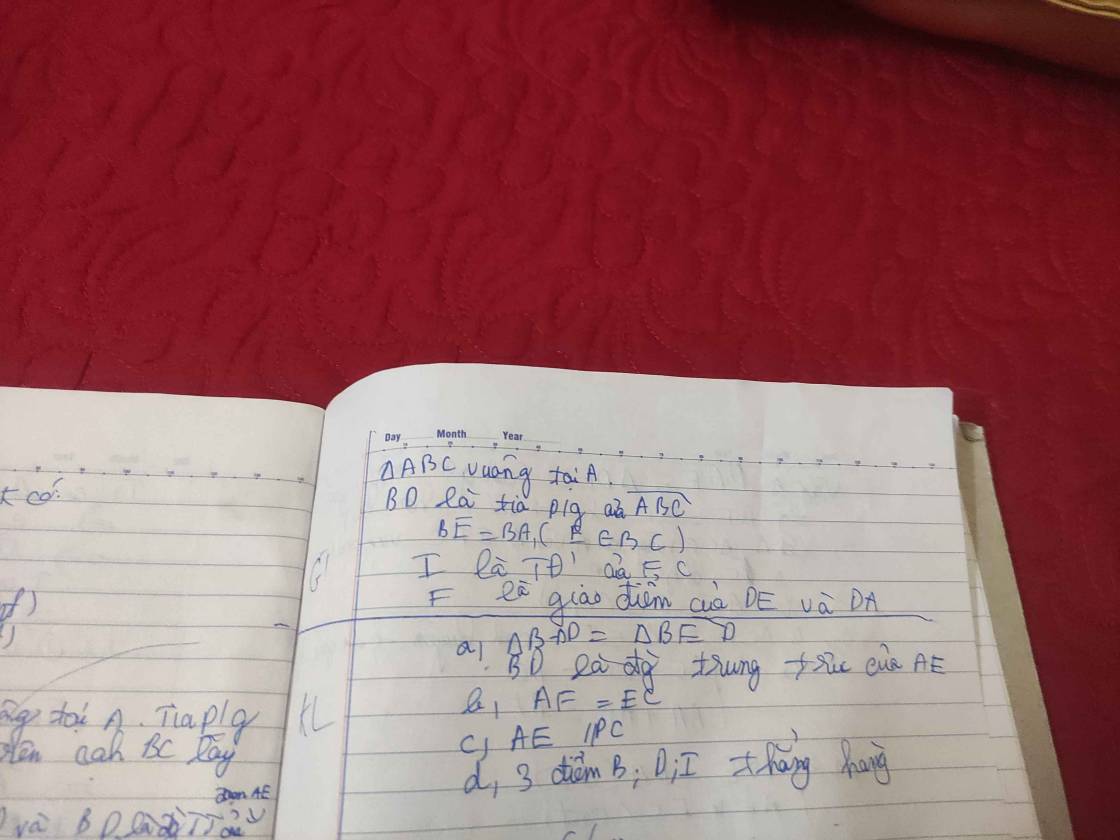 t có:
)
ng tại A. Tia p/g
trên cạh BC lấy
đoạn AE
và BD là đg TT của
Day Month Year
ΔABC vuông tại A.
BD là tia p/g của ABC
BE = BA, (E ∈ BC)
I là TĐ' của F, C
F là giao điểm của DE và DA
GT
a, ΔBAD = ΔBED
BD là đg trung trực của AE
b, AF = EC
KL
c, AE //FC
d, 3 điểm B; D; I thẳng hàng